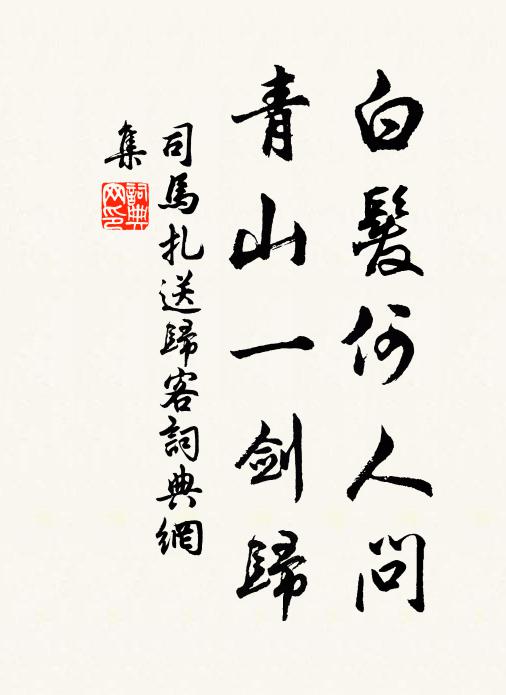 白髮何人問
青山一劍歸
司馬扎送歸客詞典網
集
詞典
网印